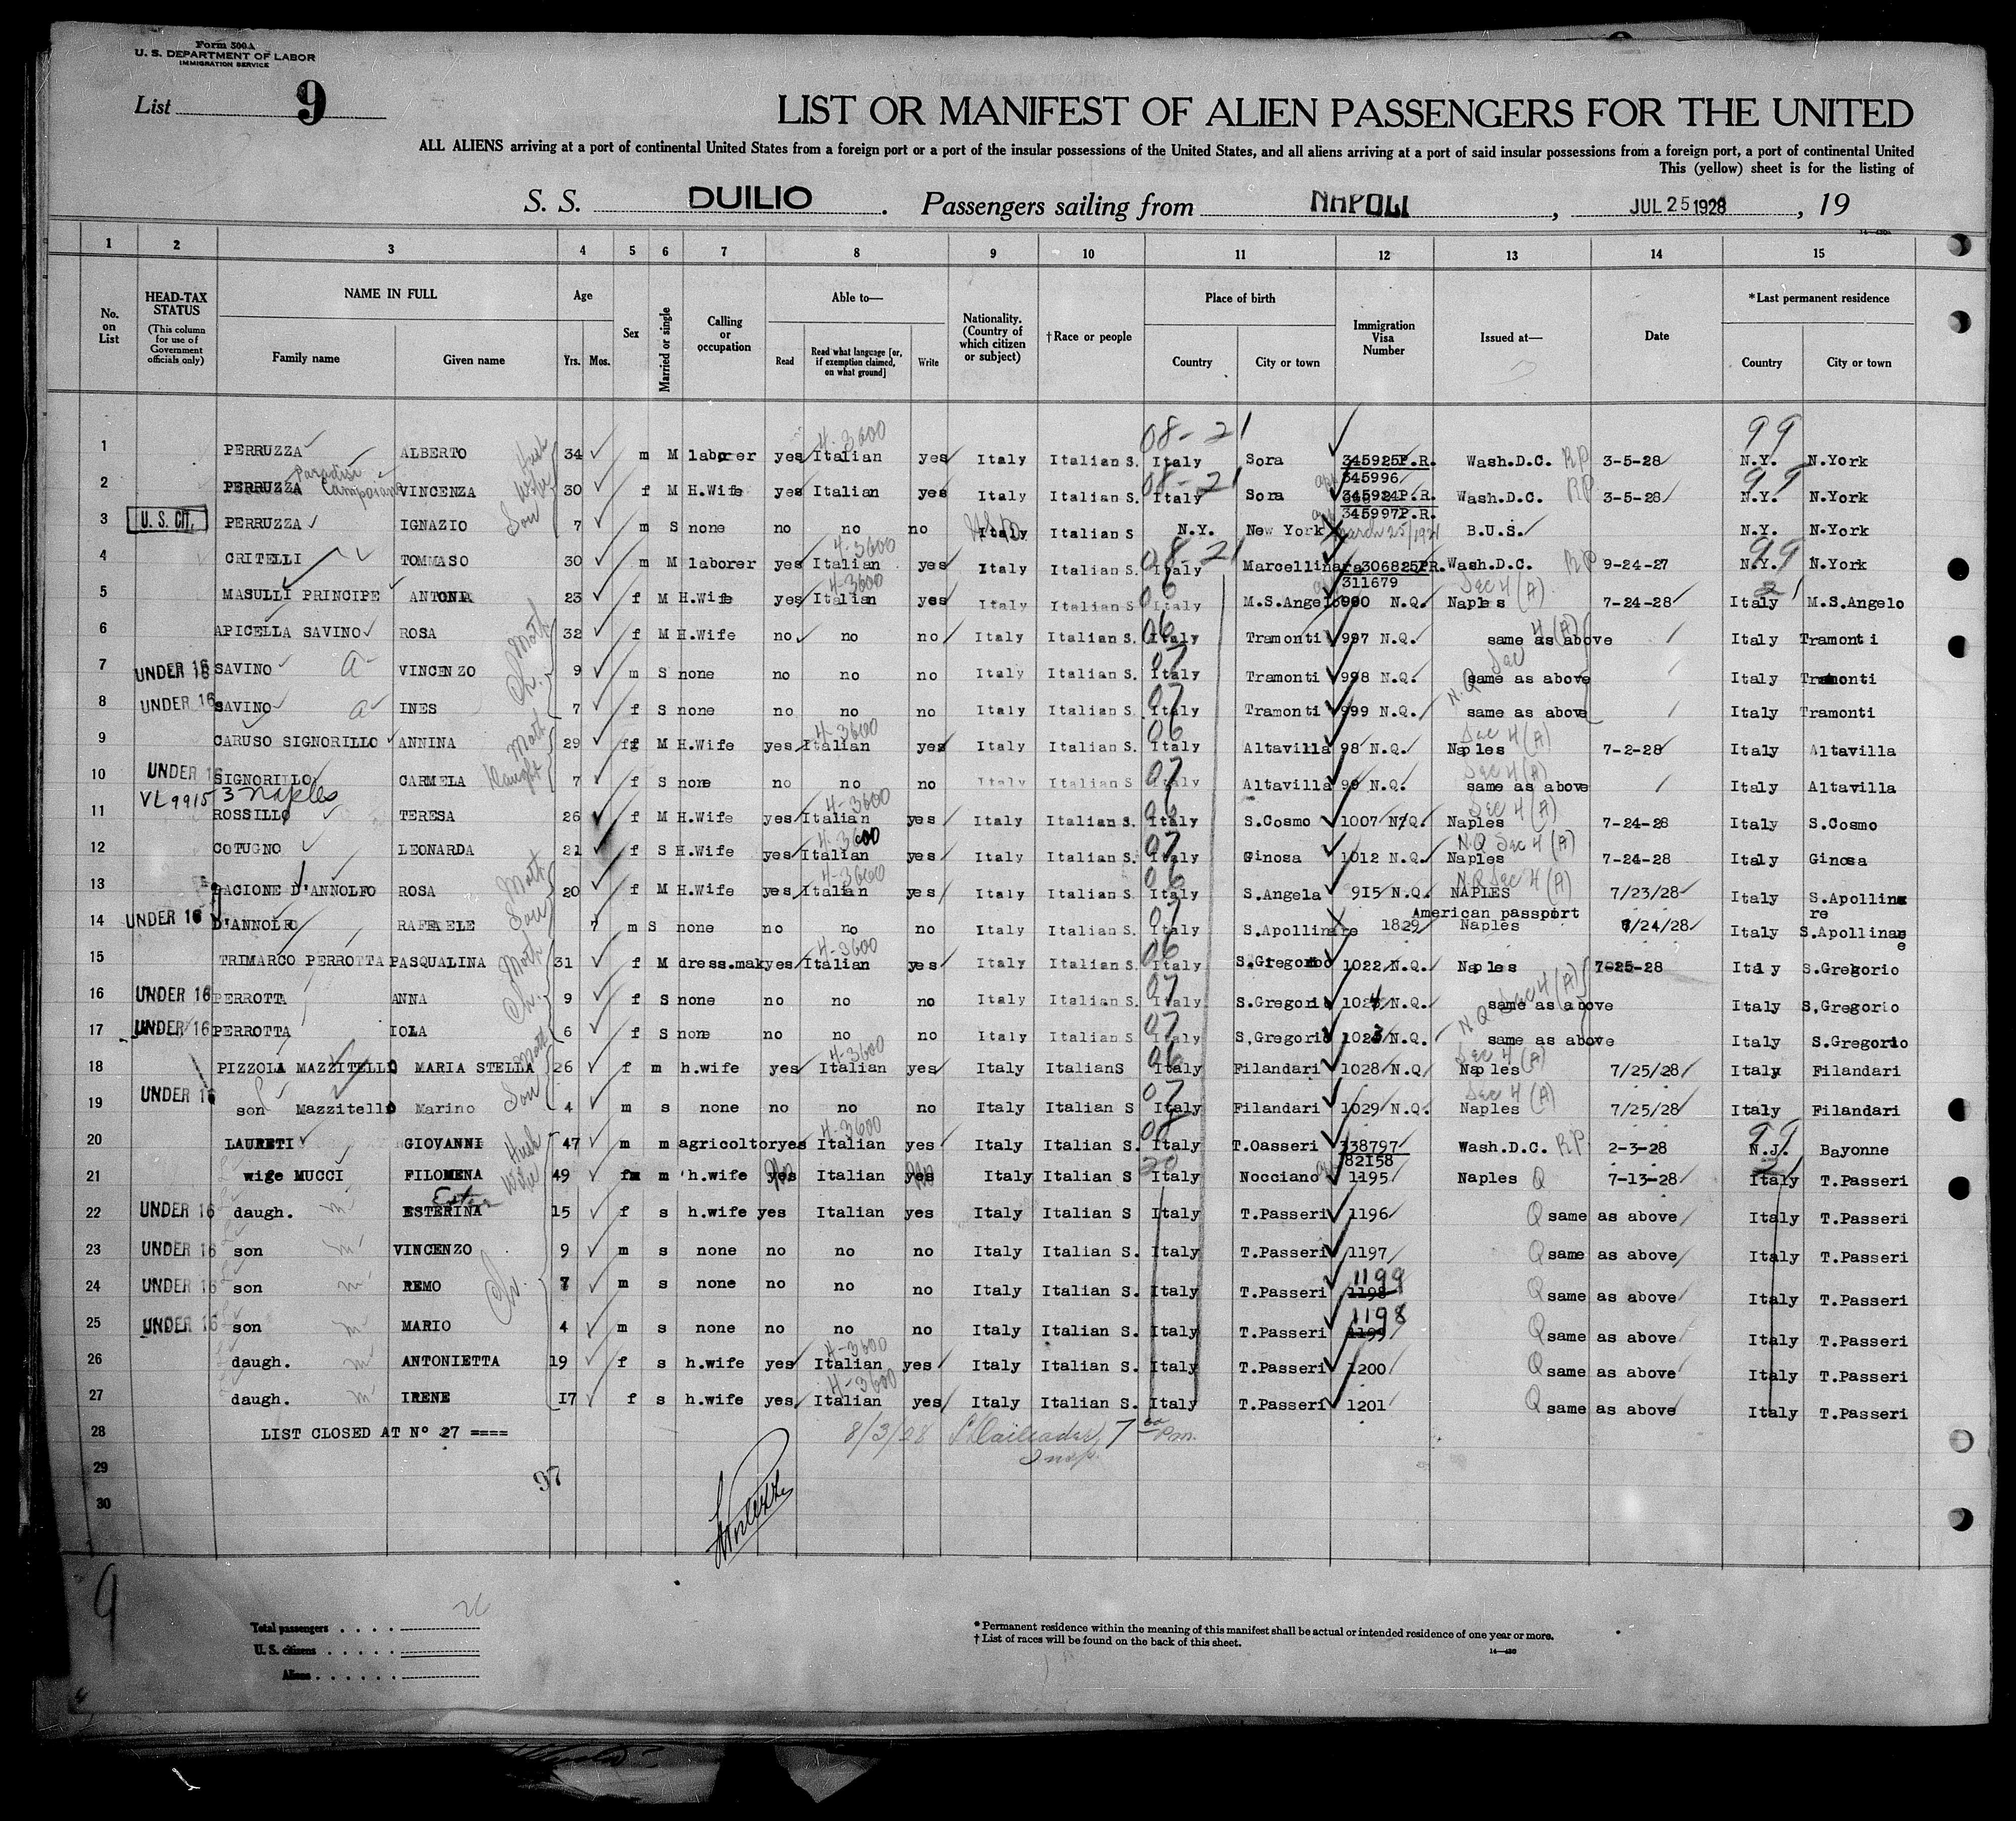 Form 500A
U. S. DEPARTMENT OF LABOR
IMMIGRATION SERVICE
List 9
LIST OR MANIFEST OF ALIEN PASSENGERS FOR THE UNITED
ALL ALIENS arriving at a port of continental United States from a foreign port or a port of the insular possessions of the United States, and all aliens arriving at a port of said insular possessions from a foreign port, a port of continental United
This (yellow) sheet is for the listing of
S. S. DUILIO. Passengers sailing from NAPOLI, JUL 25 1928, 19
1 2 3 4 5 6 7 8 9 10 11 12 13 14 15
No. on List
HEAD-TAX STATUS (This column for use of Government officials only)
NAME IN FULL Family name Given name
Age Yrs. Mos.
Sex
Married or single
Calling or occupation
Able to— Read Read what language [or, if exemption claimed, on what ground] Write
Nationality. (Country of which citizen or subject)
† Race or people
Place of birth Country City or town
Immigration Visa Number
Issued at—
Date
* Last permanent residence Country City or town
1 PERRUZZA ALBERTO Husb 34 m M laborer yes Italian 4-3600 yes Italy Italian S. 08-21 Italy Sora 345925P.R. 345996 Wash.D.C. RP 3-5-28 99 N.Y. N.York
2 PERRUZZA Paradisi VINCENZA Wife 30 f M H.Wife yes Italian yes Italy Italian S. 08-21 Italy Sora 345924P.R. 345997P.R. Wash.D.C. RP 3-5-28 99 N.Y. N.York
3 U. S. CIT. PERRUZZA IGNAZIO Son 7 m S none no no no Italy Italian S N.Y. New York March 25/1921 B.U.S. N.Y. N.York
4 CRITELLI TOMMASO 30 m M laborer yes Italian 4-3600 yes Italy Italian S. 08-21 Italy Marcellinara 306825PR. 311679 Wash.D.C. RP 9-24-27 99 N.Y. N.York
5 MASULLI PRINCIPE ANTONIA 23 f M H.Wife yes Italian 4-3600 yes Italy Italian S. 06 Italy M.S.Angelo 990 N.Q. Naples Sec 4 (A) 7-24-28 Italy M.S.Angelo
6 APICELLA SAVINO ROSA Moth 32 f M H.Wife no no no Italy Italian S. 06 Italy Tramonti 997 N.Q. same as above Italy Tramonti
7 UNDER 16 SAVINO a VINCENZO Ch. 9 m S none no no no Italy Italian S. 07 Italy Tramonti 998 N.Q. same as above Italy Tramonti
8 UNDER 16 SAVINO a INES 7 f S none no no no Italy Italian S. 07 Italy Tramonti 999 N.Q. same as above Italy Tramonti
9 CARUSO SIGNORILLO ANNINA Moth 29 f M H.Wife yes Italian 4-3600 yes Italy Italian S. 06 Italy Altavilla 98 N.Q. Naples Sec 4 (A) 7-2-28 Italy Altavilla
10 UNDER 16 SIGNORILLO CARMELA Daught 7 f S none no no no Italy Italian S 07 Italy Altavilla 99 N.Q. same as above Sec 4 (A) Italy Altavilla
VL 99153 Naples
11 ROSSILLO TERESA 26 f M H.Wife yes Italian 4-3600 yes Italy Italian S. 06 Italy S.Cosmo 1007 N.Q. Naples Sec 4 (A) 7-24-28 Italy S.Cosmo
12 COTUGNO LEONARDA 21 f S H.Wife yes Italian 4-3600 yes Italy Italian S. 07 Italy Ginosa 1012 N.Q. Naples N.Q Sec 4 (A) 7-24-28 Italy Ginosa
13 PACIONE D'ANNOLFO ROSA Moth 20 f M H.Wife yes Italian 4-3600 yes Italy Italian S. 06 Italy S.Angela 915 N.Q. NAPLES N.Q Sec 4 (A) 7/23/28 Italy S.Apollinare
14 UNDER 16 D'ANNOLFO RAFFAELE Son 7 m S none no no no Italy Italian S. 07 Italy S.Apollinare 1829 American passport Naples 7/24/28 Italy S.Apollinare
15 TRIMARCO PERROTTA PASQUALINA Moth 31 f M dress.mak yes Italian 4-3600 yes Italy Italian S. 06 Italy S.Gregorio 1022 N.Q. Naples 7-25-28 Italy S.Gregorio
16 UNDER 16 PERROTTA ANNA Ch. 9 f S none no no no Italy Italian S. 07 Italy S.Gregorio 1024 N.Q. same as above N.Q Sec 4 (A) Italy S.Gregorio
17 UNDER 16 PERROTTA IOLA 6 f S none no no no Italy Italian S. 07 Italy S.Gregorio 1023 N.Q. same as above Italy S.Gregorio
18 PIZZOLA MAZZITELLO MARIA STELLA Moth 26 f m h.wife yes Italian 4-3600 yes Italy ItalianS 06 Italy Filandari 1028 N.Q Naples Sec 4 (A) 7/25/28 Italy Filandari
19 UNDER 16 son Mazzitello Marino Son 4 m s none no no no Italy Italian S 07 Italy Filandari 1029 N.Q. Naples Sec 4 (A) 7/25/28 Italy Filandari
20 LAURETI GIOVANNI Husb 47 m m agricoltor yes Italian 4-3600 yes Italy Italian S. Italy T.Oasseri 338797 82158 Wash.D.C. RP 2-3-28 99 N.J. Bayonne
21 wige MUCCI FILOMENA Wife 49 f m h.wife yes Italian yes Italy Italian S Italy Nocciano 1195 Naples Q 7-13-28 Italy T.Passeri
22 UNDER 16 daugh. ESTERINA Ester 15 f s h.wife yes Italian yes Italy Italian S Italy T.Passeri 1196 Q same as above Italy T.Passeri
23 UNDER 16 son VINCENZO 9 m s none no no no Italy Italian S. Italy T.Passeri 1197 Q same as above Italy T.Passeri
24 UNDER 16 son REMO Ch. 7 m s none no no no Italy Italian S. Italy T.Passeri 1199 1198 Q same as above Italy T.Passeri
25 UNDER 16 son MARIO 4 m s none no no no Italy Italian S. Italy T.Passeri 1198 1199 Q same as above Italy T.Passeri
26 daugh. ANTONIETTA 19 f s h.wife yes Italian 4-3600 yes Italy Italian S. Italy T.Passeri 1200 Q same as above Italy T.Passeri
27 daugh. IRENE 17 f s h.wife yes Italian 4-3600 yes Italy Italian S. Italy T.Passeri 1201 Q same as above Italy T.Passeri
28 LIST CLOSED AT N° 27 ==== 8/3/28 7 Pm.
Insp.
29
97
30
9
Total passengers 26
U. S. citizens
Aliens
* Permanent residence within the meaning of this manifest shall be actual or intended residence of one year or more.
† List of races will be found on the back of this sheet.